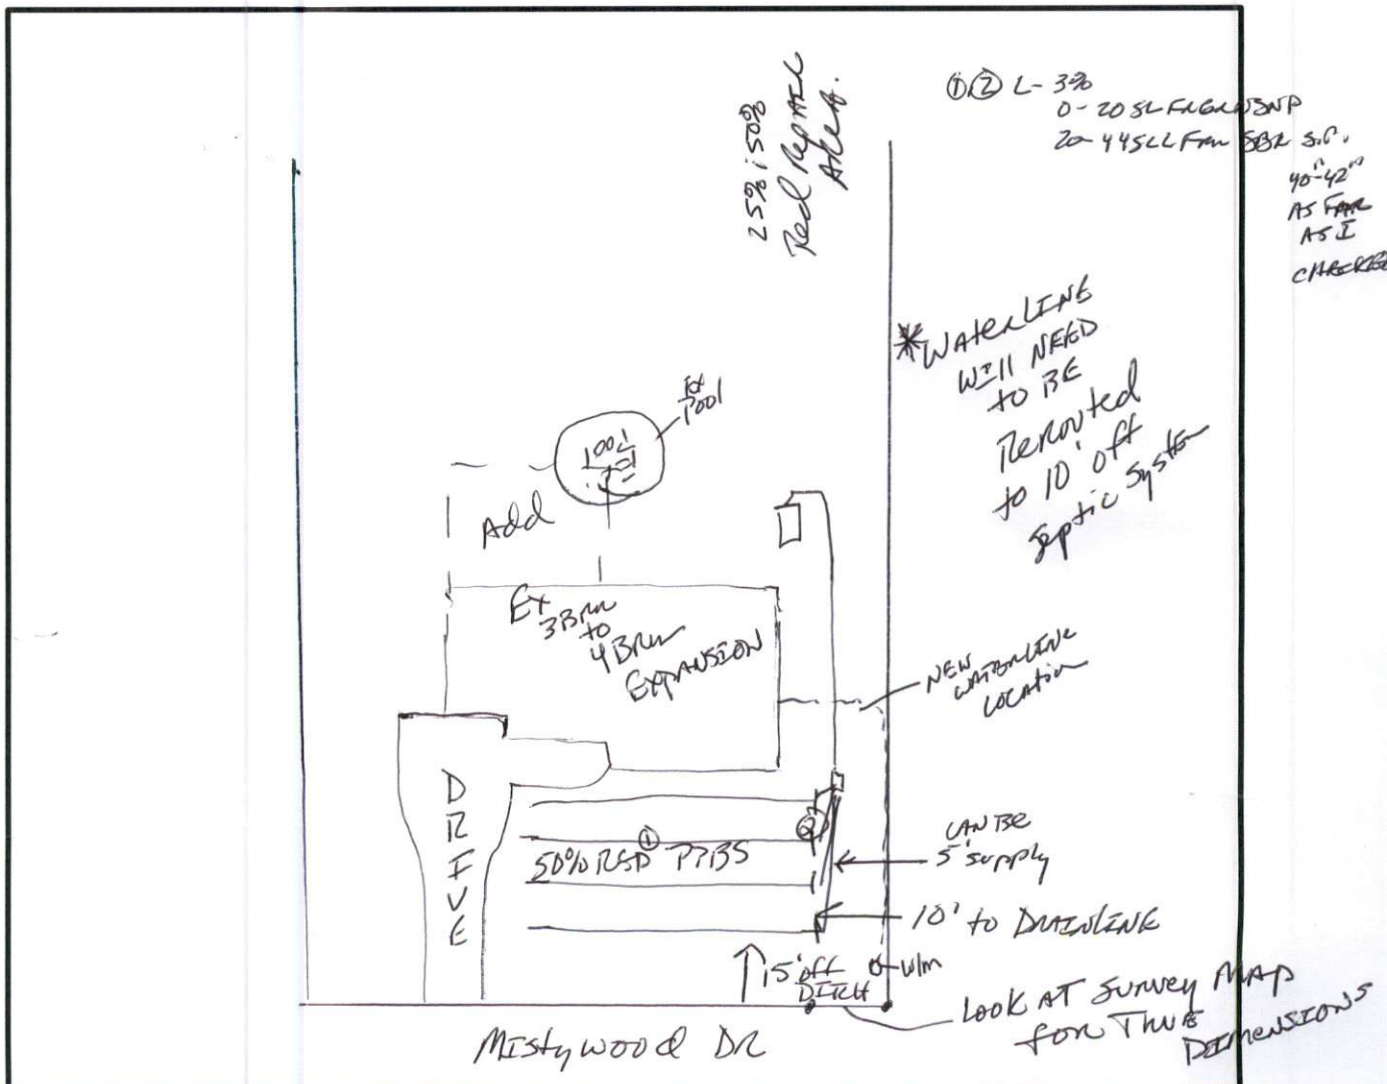 ①,② L-3%
0-20 SL FR GR NS NP
20-44 SCL Frm SBK S.P.
40"-42"
AS FAR
AS I
CHECKED
25% i 50%
Red Repair
Area.
* Waterline
will need
to be
Rerouted
to 10' off
Septic System
Ex
Pool
Pool
Add
Ex
3 Brm
to
4 Brm
EXPANSION
NEW
WATERLINE
LOCATION
DRIVE
①
②
50% RED PPBS
CAN BE
5' supply
10' to DRAINLINE
15' off
DITCH
w/m
LOOK AT SURVEY MAP
for TRUE
DIMENSIONS
Mistywood DR